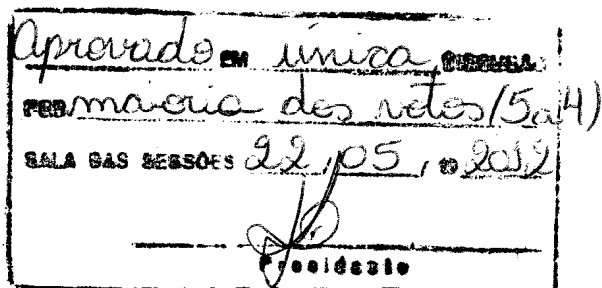 aprovado EM única DISCUSSÃO
POR maioria dos votos (5a4)
SALA DAS SESSÕES 22, 05, DE 2012
Presidente